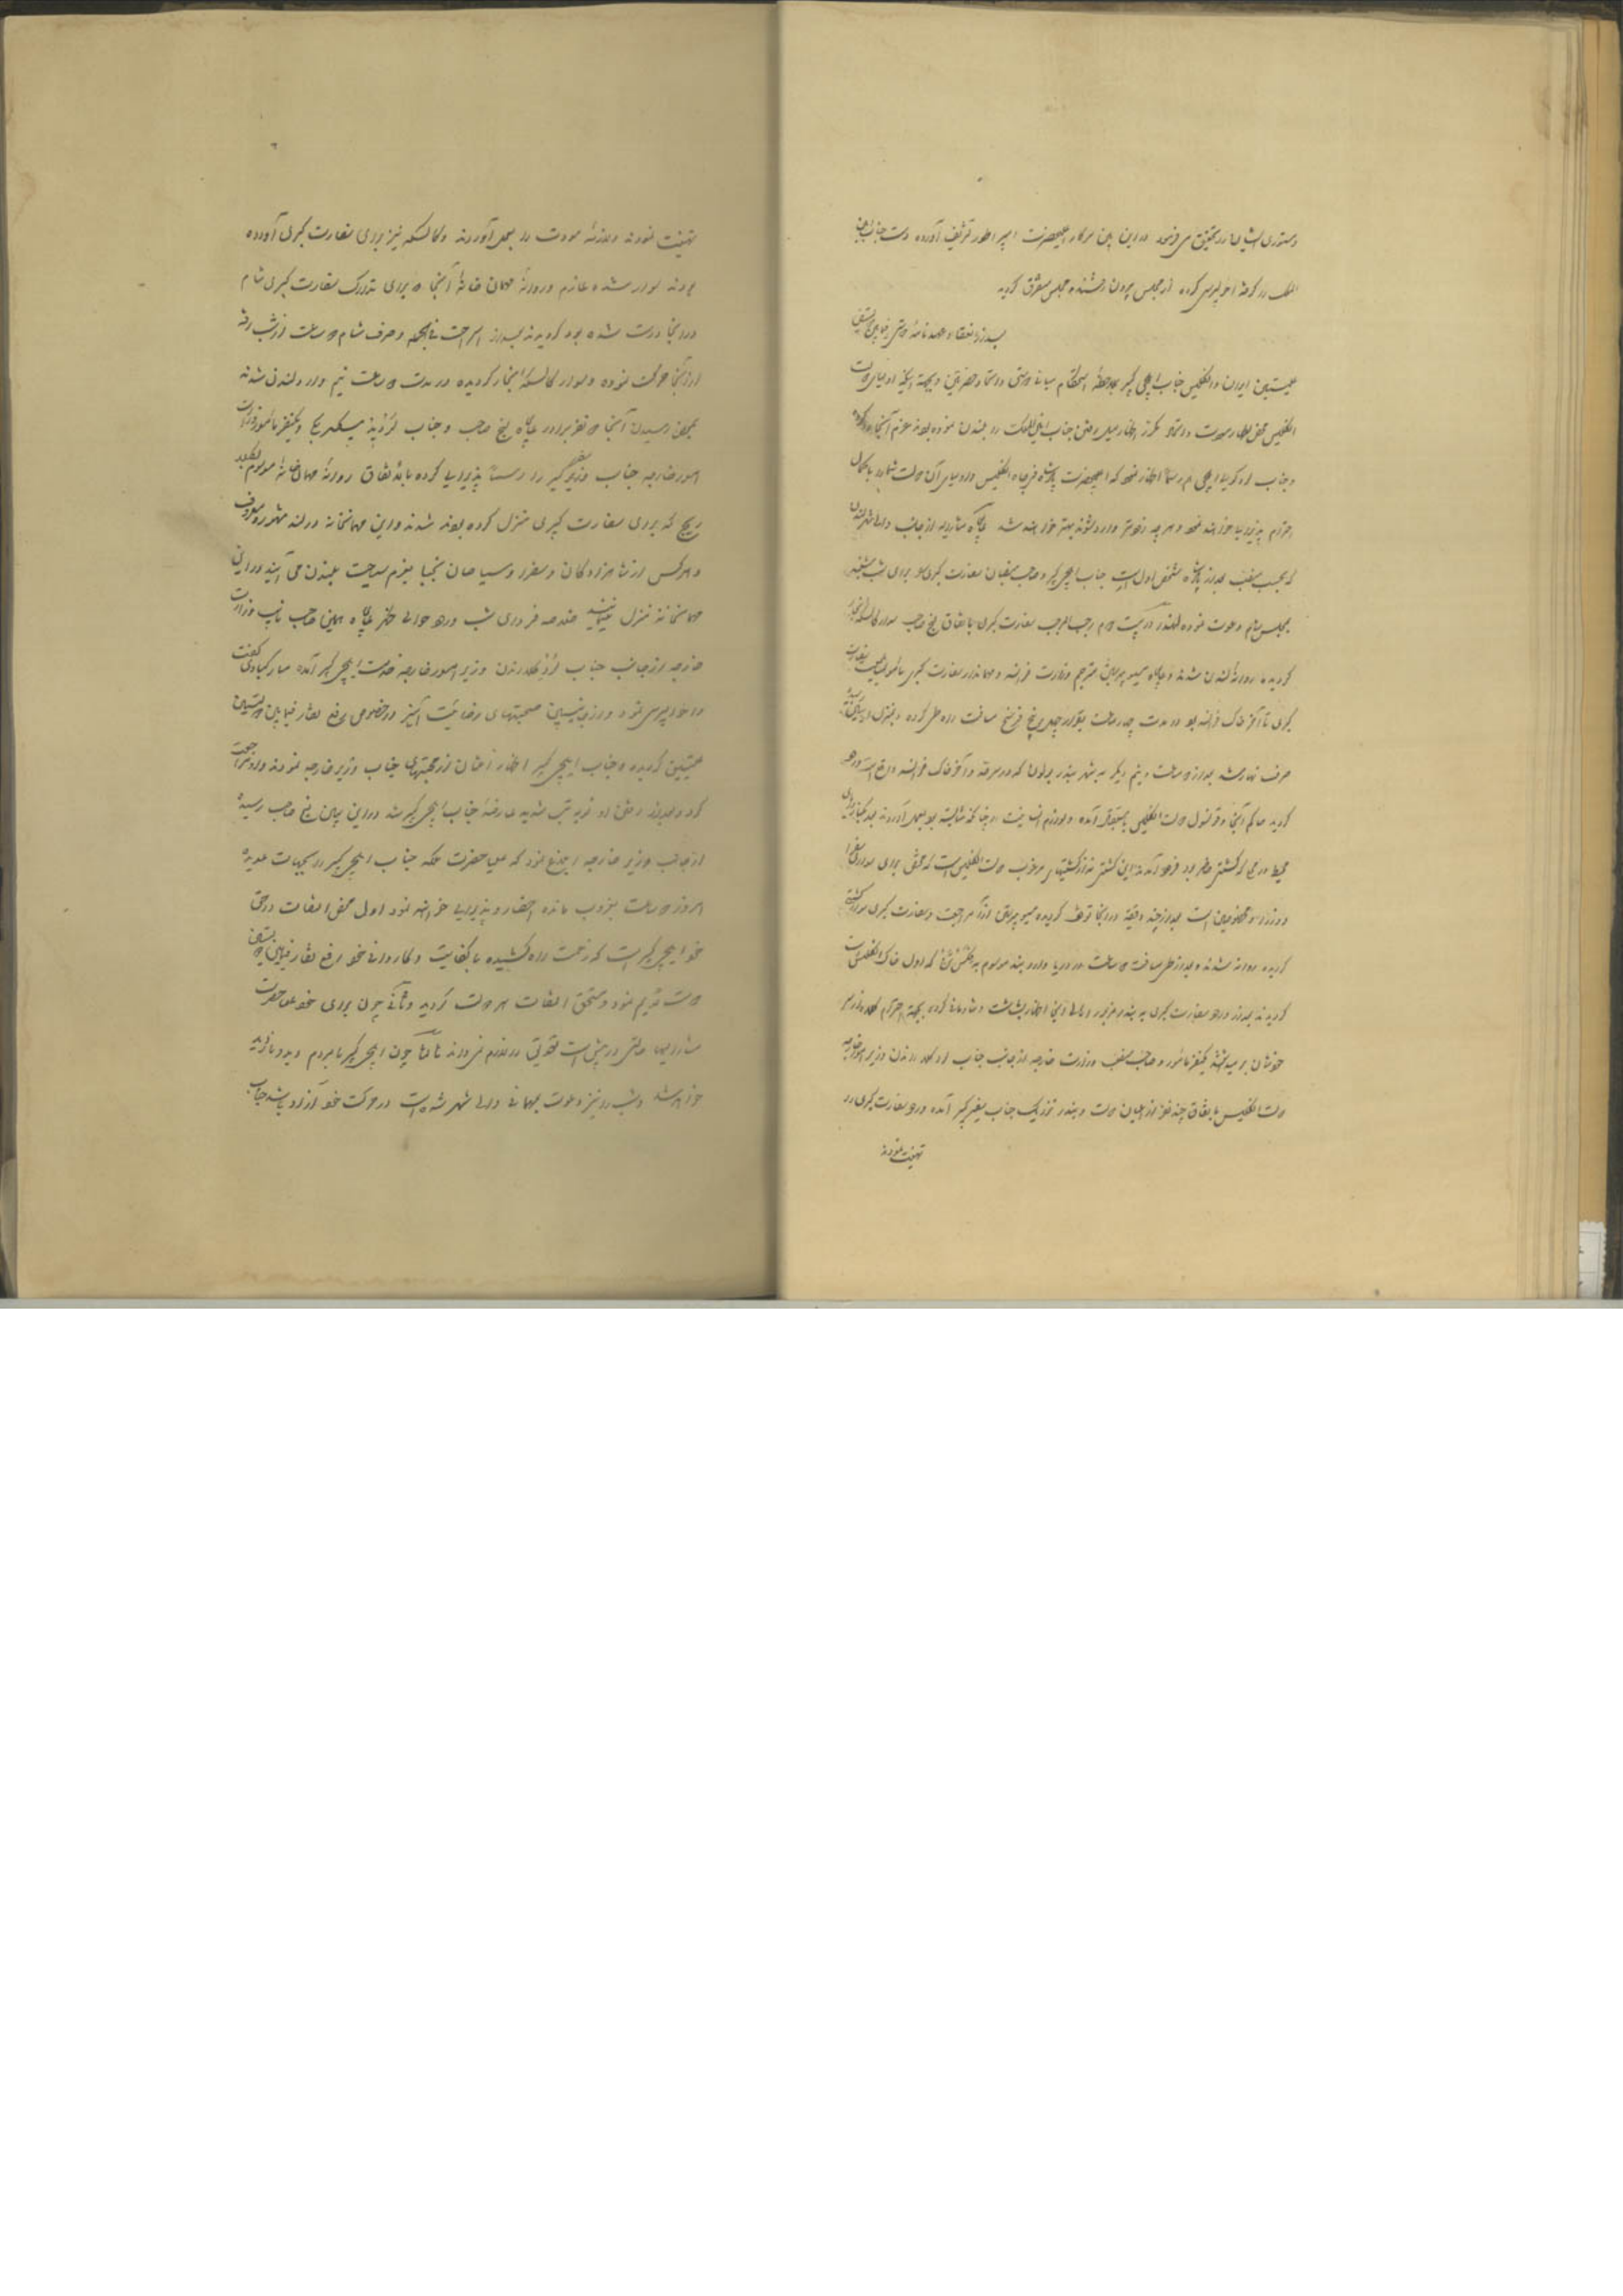 دستوری ایشان را تحقیق می‌فرمود در این بین سرکار اعلیحضرت امپراطور تشریف آورده دست جناب امین
الملک را گرفته احوالپرسی کرده از مجلس بیرون رفتند و مجلس متفرق گردید
بعد از انعقاد عهدنامه دوستی فیمابین دولتین
علیتین ایران و انگلیس جناب ایلچی کبیر بملاحظه استحکام مبانی دوستی و اتحاد حضرتین و بجهة اینکه اولیای دولت
انگلیس محض اظهار مودت و اتحاد مکرر اظهار میل برفتن جناب امین الملک را بلندن نموده بودند عزم آنجا را کرده
و جناب لرد کولی ایلچی هم رسماً اظهار نمود که اعلیحضرت پادشاه انگلیس و اولیای آن دولت شما را با کمال
احترام پذیرا خواهند نمود و هر چه زودتر وارد شوند بهتر خواهد شد از جانب والی شهر لندن
که بحسب منصب بعد از پادشاه شخص اول است جناب ایلچی کبیر و صاحب منصبان سفارت کبری را برای شب
بمجلس شام دعوت نموده لهذا در بیست و دوم رجب المرجب سفارت کبری باتفاق لنج صاحب سوار کالسکه بخار
گردیده روانه لندن شدند مسیو مترجم وزارت فرانسه و مهماندار سفارت کبری
کبری تا آخر خاک فرانسه بود در مدت چهار ساعت بقدر چهل و پنج فرسخ مسافت راه طی کرده
صرف نهار شد بعد از دو ساعت و نیم دیگر به شهر بندر بولون که در سرحد و آخر خاک فرانسه واقع است وارد
گردید حاکم آنجا و قونسول دولت انگلیس باستقبال آمده و لوازم انسانیت را چنانکه شایسته بود بعمل آوردند بعد بکنار دریای
محیط در جائی که کشتی حاضر بود فرود آمدند این کشتی از کشتیهای مرغوب دولت انگلیس است که محض برای سواری سفرا
و وزرا و مخصوصین است بعد از چند دقیقه در اینجا توقف گردیده مسیو از آنجا مراجعت و سفارت کبری سوار کشتی
گردیده روانه شدند بعد از طی مسافت دو ساعت در دریا وارد بندر موسوم به که اول خاک انگلیس است
گردیدند بعد از ورود سفارت کبری به بندر مزبور اهالی اینجا اظهار بشاشت و شادمانی کرده بجهة احترام کلاه از سر
خودشان برمیداشتند یکنفر مأمور و صاحب منصب وزارت خارجه از جانب جناب لرد کلارندون وزیر امور خارجه
دولت انگلیس باتفاق چند نفر از اعیان دولت و بندر نزدیک جناب سفیر کبیر آمده ورود سفارت کبری را
تهنیت نمودند
تهنیت نمودند و لازمه مودت را بعمل آوردند و کالسکه نیز برای سفارت کبری آورده
بودند سوار شده عازم و روانه مهمان خانه آنجا که برای تدارک سفارت کبری شام
در آنجا درست شده بود گردیدند بعد از استراحت فی‌الجمله و صرف شام دو ساعت از شب رفته
از آنجا حرکت نموده و سوار کالسکه بخار گردیده در مدت دو ساعت و نیم وارد لندن شدند
بمحض رسیدن آنجا دو نفر برادر لنج صاحب و جناب و یکنفر مأمور وزارت
امور خارجه جناب سفیر کبیر را رسماً پذیرایی کرده باتفاق روانه مهمان خانه موسوم بکلار
ریج که برای سفارت کبری منزل کرده بودند شدند و این مهمانخانه در لندن مشهور و معروف
و هر کس از شاهزادگان و سفرا و سیاحان نجبا بعزم سیاحت بلندن می‌آیند در این
مهمانخانه منزل مینمایند خلاصه فردای شب ورود حوالی ظهر همین صاحب نایب وزارت
خارجه از جانب جناب لرد کلارندون وزیر امور خارجه خدمت ایلچی کبیر آمده مبارکبادی گفت
و احوالپرسی نمود و از جانبین صحبتهای رضائیت آمیز در خصوص رفع نقار فیمابین دولتین
علیتین گردیده و جناب ایلچی کبیر اظهار امتنان از محبتهای جناب وزیر خارجه نمودند و او مراجعت
کرد و بعد از رفتن او نوبه تب شدید عارضه جناب ایلچی کبیر شد در این بین لنج صاحب رسیده
از جانب وزیر خارجه ابلاغ نمود که علیاحضرت ملکه جناب ایلچی کبیر را بجهات عدیده
امروز دو ساعت بغروب مانده احضار و پذیرایی خواهند نمود اول محض التفات در حق
خود ایلچی کبیر است که زحمت راه کشیده با کفایت و کاردانی خود رفع نقار فیمابین دولتین
دوست قدیم نمود و مستحق التفات هر دو دولت گردید و ثانی چون برای خود علیاحضرت
مشارالیها حالتی در پیش است که قوتی در اندام نمیدارند ثالثاً چون ایلچی کبیر با مردم دید و بازدید
خواهد شد و شب را نیز دعوت مهمانی والی شهر شده است در حرکت خود آزاد باشد جناب